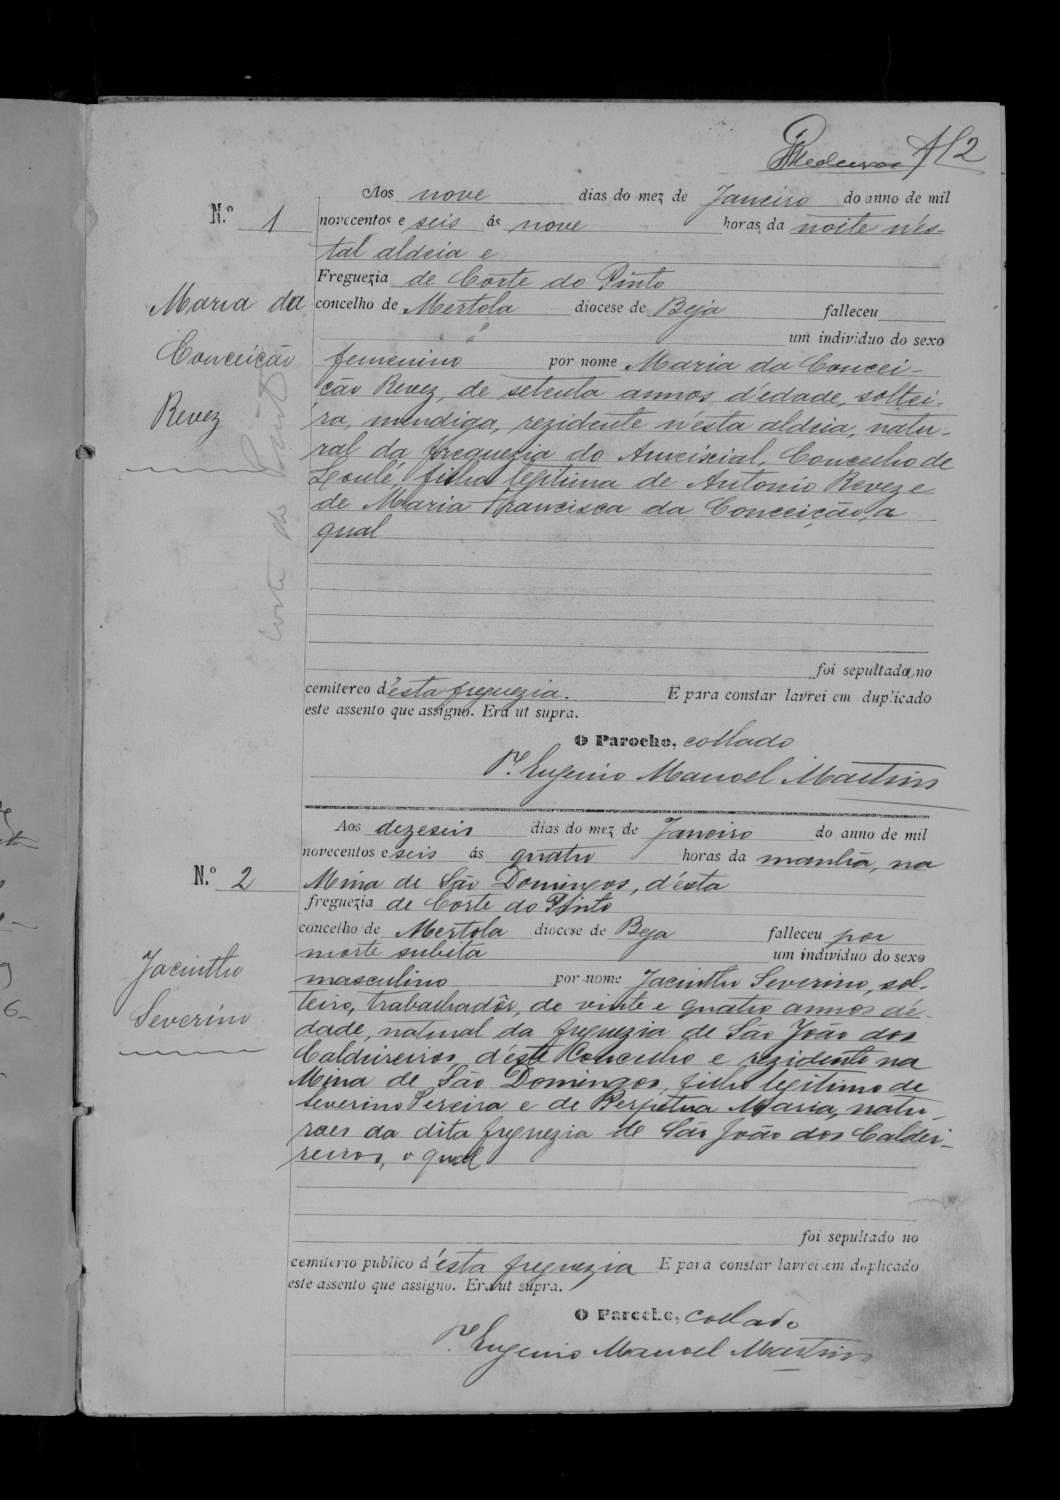 Medeiros Fl 2
Aos nove dias do mez de Janeiro do anno de mil
N.º 1 novecentos e seis ás nove horas da noite n'es-
tal aldeia e
Freguezia de Corte do Pinto
Maria da concelho de Mertola diocese de Beja falleceu
um individuo do sexo
Conceição femenino por nome Maria da Concei-
ção Revez, de setenta annos d'edade, soltei-
Revez ra, mendiga, rezidente n'esta aldeia, natu-
ral da freguezia do Ameixial, Concelho de
Loulé, filha legitima de Antonio Revez e
de Maria Francisca da Conceição, a
qual
Corte do Pinto
foi sepultada no
cemitereo d'esta freguezia. E para constar lavrei em duplicado
este assento que assigno. Era ut supra.
O Parocho, collado
P.e Eugenio Manoel Martins
Aos dezeseis dias do mez de Janeiro do anno de mil
novecentos e seis ás quatro horas da manhã, na
N.º 2 Mina de São Domingos, d'esta
freguezia de Corte do Pinto
concelho de Mertola diocese de Beja falleceu por
morte subita um individuo do sexo
Jacintho masculino por nome Jacintho Severino, sol-
teiro, trabalhadôr, de vinte e quatro annos d'é-
Severino dade, natural da freguezia de São João dos
Caldeireiros, d'este Concelho e rezidente na
Mina de São Domingos, filho legitimo de
Severino Pereira e de Perpetua Maria, natu-
raes da dita freguezia de São João dos Caldei-
reiros, o qual
foi sepultado no
cemiterio publico d'esta freguezia E para constar lavrei em duplicado
este assento que assigno. Era ut supra.
O Parocho, collado
P.e Eugenio Manoel Martins